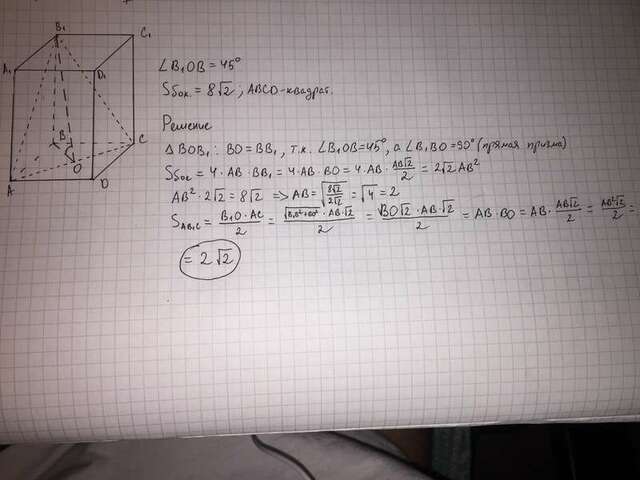 B₁
C₁
A₁
D₁
B
C
O
A
D
∠B₁OB = 45°
Sбок. = 8√2 ; ABCD-квадрат.
Решение
△ BOB₁ : BO = BB₁ , т.к. ∠B₁OB=45°, а ∠B₁BO=90° (прямая призма)
Sбок = 4·AB·BB₁ = 4·AB·BO = 4·AB·AB√2/2 = 2√2 AB²
AB²·2√2 = 8√2 => AB = √(8√2/2√2) = √4 = 2
S_AB₁C = B₁O·AC/2 = √(B₁B²+BO²)·AB√2/2 = BO√2·AB√2/2 = AB·BO = AB·AB√2/2 = AB²√2/2 =
= 2√2